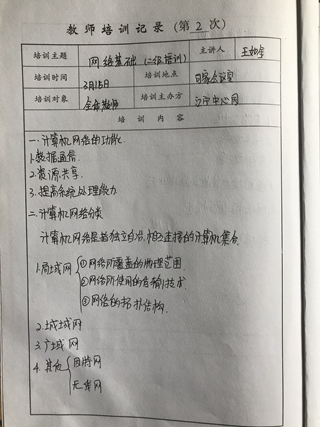 教师培训记录（第2次）
培训主题 网络基础（二级培训） 主讲人 王如
培训时间 3月15日 培训地点 会议室
培训对象 全体教师 培训主办方 中心园
培训内容
一.计算机网络的功能
1.数据通信
2.资源共享.
3.提高系统处理能力
二.计算机网络分类
计算机网络是指独立自治、相互连接的计算机集合.
1.局域网 ①网络所覆盖的地理范围.
②网络所使用的传输技术
③网络的拓扑结构.
2.城域网
3.广域网
4.其他 因特网
无线网